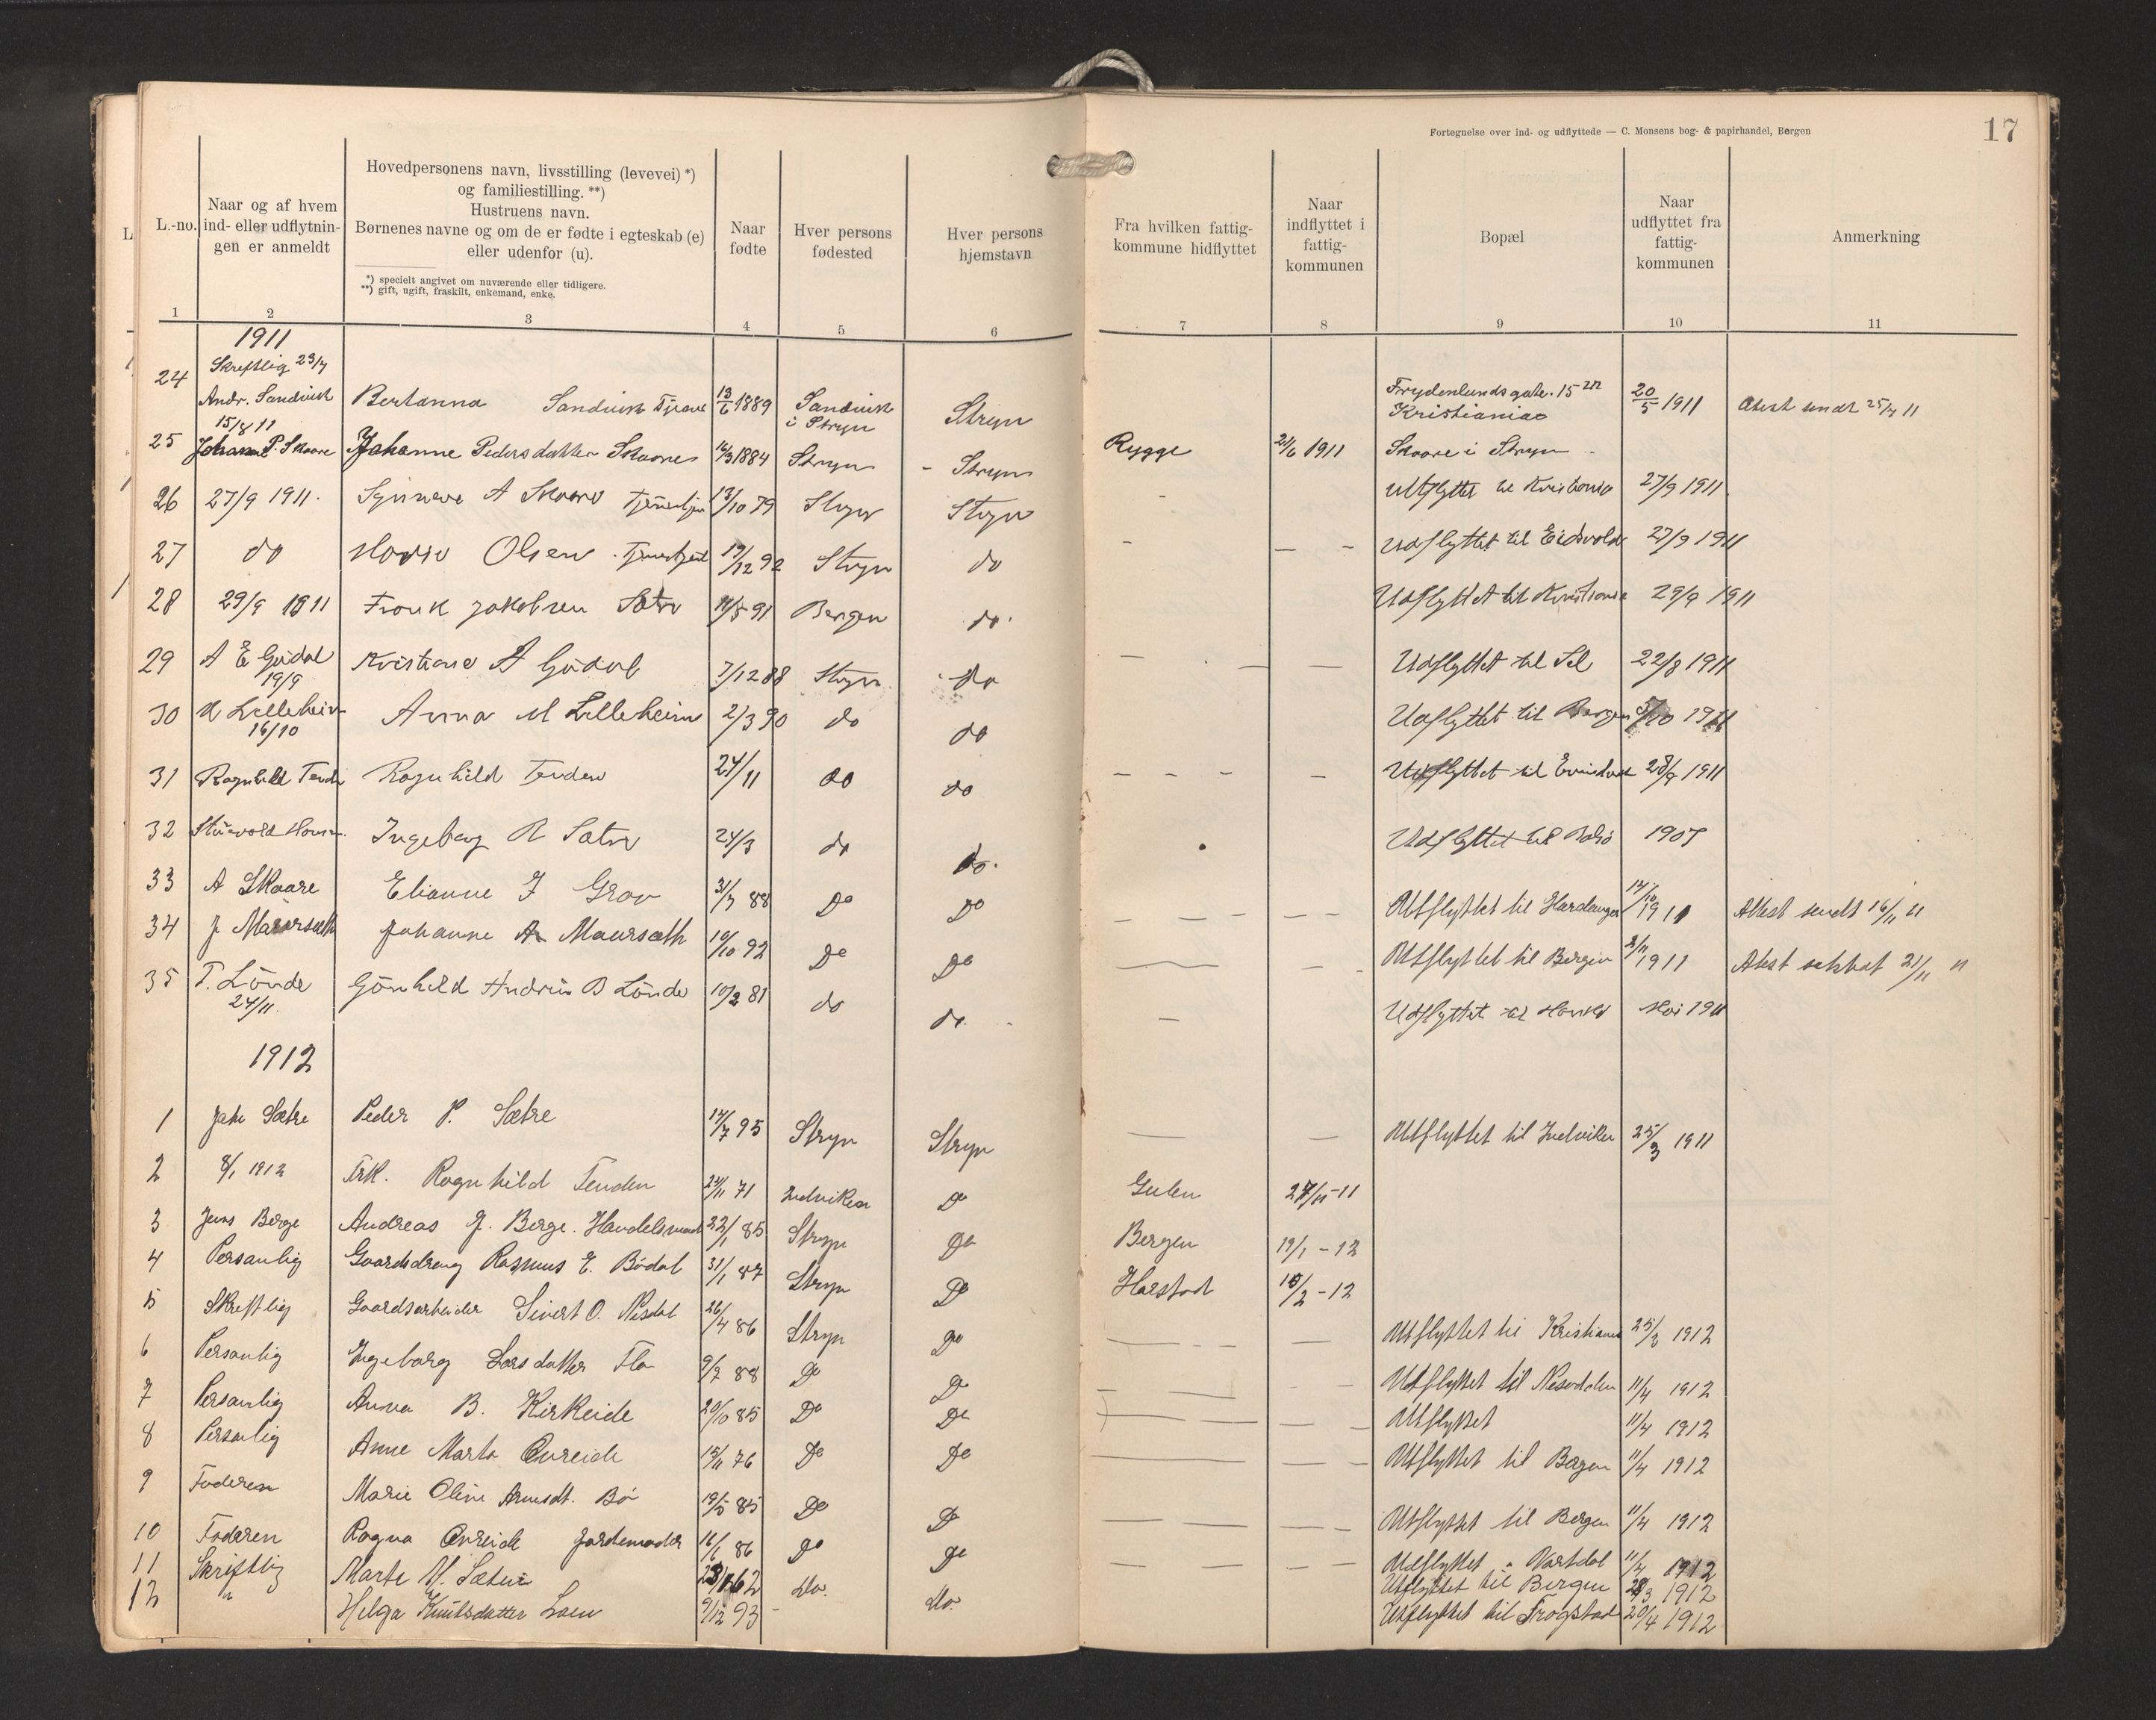 Fortegnelse over ind- og udflyttede — C. Monsens bog- & papirhandel, Bergen
17
L.-no.
Naar og af hvem ind- eller udflytningen er anmeldt
Hovedpersonens navn, livsstilling (levevei) *) og familiestilling. **)
Hustruens navn.
Børnenes navne og om de er fødte i egteskab (e) eller udenfor (u).
*) specielt angivet om nuværende eller tidligere.
**) gift, ugift, fraskilt, enkemand, enke.
Naar fødte
Hver persons fødested
Hver persons hjemstavn
Fra hvilken fattigkommune hidflyttet
Naar indflyttet i fattigkommunen
Bopæl
Naar udflyttet fra fattigkommunen
Anmerkning
1 2 3 4 5 6 7 8 9 10 11
1911
24 Skriftlig 23/4 Andr. Sandvik Bertanna Sandvik 13/6 1889 Sandvik i Stryn Stryn Frydenlundsgate 15 Kristiania 20/5 1911 Attest sendt 25/4 11
25 15/8 11 Johanne P. Skaare Johanne Pedersdatter Skaare 1884 Stryn - Stryn Rygge 21/6 1911 Skaare i Stryn
26 27/9 1911. Synneve A Skaare 13/10 79 Stryn Stryn - Utflyttet til Kristiania 27/9 1911
27 do Olsen 19/12 92 Stryn do - — - Udflyttet til Eidsvold 27/9 1911
28 29/9 1911 Frank Jakobsen Sætre 91 Bergen do. Udflyttet til Kristiania 29/9 1911
29 A E Gjødal 19/9 Kristiane A Gjødal 7/12 88 Stryn do — — — Udflyttet til Sel 22/8 1911
30 Lilleheim 16/10 Anna M Lilleheim 2/3 90 do do Udflyttet til Bergen 1911
31 Ragnhild Tenden Ragnhild Tenden 24/11 do do - - - - Udflyttet til 28/9 1911
32 Ingeborg R Sætre 24/3 do do. Udflyttet til
33 A Skaare Elianne J Grov 88 Do Do Utflyttet til Hardanger Attest sendt 16/11 11
34 J Maursæth Johanne A Maursæth 10/10 92 Do Do Utflyttet til Bergen 1911 21/11 11
35 T. Lönde 24/11 B Lönde 10/2 81 do do. — Udflyttet til Mai 1911
1912
1 Sætre Peder P. Sætre 14/7 95 Stryn Stryn — — Utflyttet til Indviken 25/3 1911
2 8/1 1912 Frk. Ragnhild Tenden 24/11 71 Indviken Do Gulen 27/11-11
3 Jens Berge Andreas J. Berge. Handelsmand 22/1 85 Stryn Do Bergen 19/1 - 12
4 Personlig Gaardsdreng Rasmus E. Bödal 31/1 87 Stryn Do Harstad 15/2 - 12
5 Skriftlig Gaardsarbeider Sivert O. Nesdal 26/4 86 Stryn Do Utflyttet til Kristiania 25/2 1912
6 Personlig Ingeborg Larsdatter Flo 9/7 88 Do Do Utflyttet til Nesodden 11/4 1912
7 Personlig Anna B. Kirkeide 20/10 85 Do Do Utflyttet 11/4 1912
8 Personlig Anne Marta Övreide 15/11 76 Do Do Utflyttet til Bergen 11/4 1912
9 Faderen Marie Oline Bö 19/5 85 Do Do Utflyttet til Bergen 11/4 1912
10 Faderen Ragna Övreide Jordemoder 86 Do Do Udflyttet Vartdal 11/4 1912
11 Skriftlig Marte M. Sætren 62 do. do. Utflyttet til Bergen 1912
12 " Helga Knutsdatter Loen 9/12 93 - Utflyttet til Trøgstad 20/4 1912